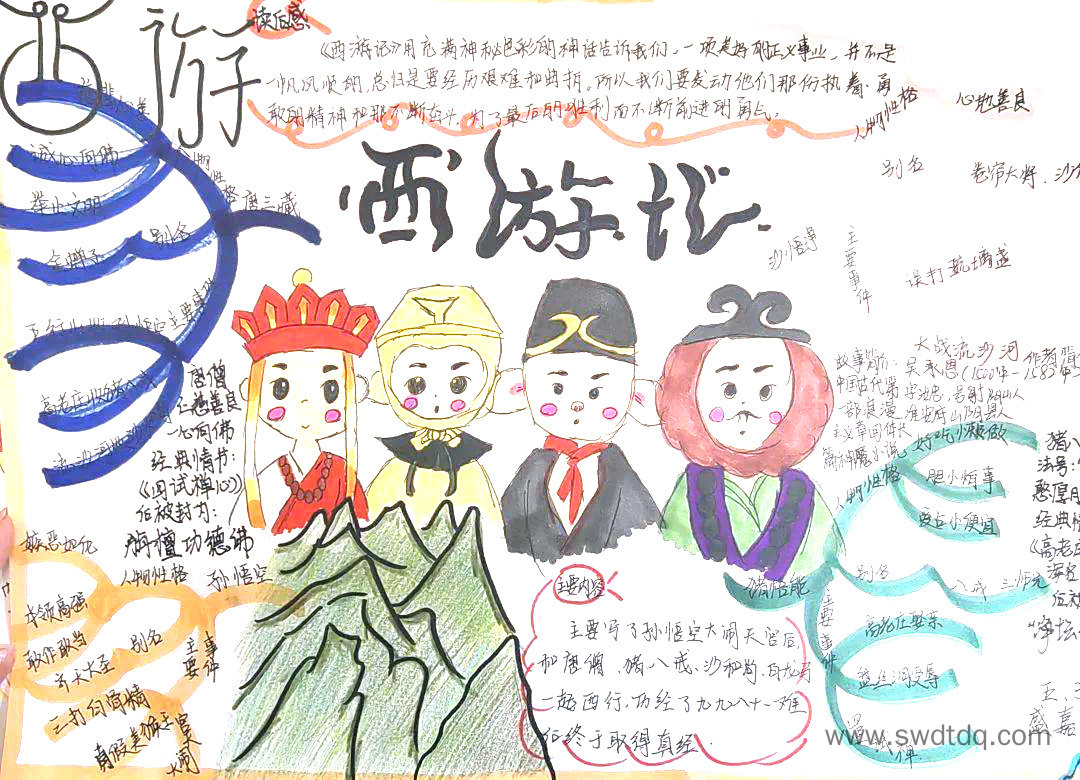 西游
读后感
《西游记》用充满神秘色彩的神话告诉我们,一项美好和正义事业,并不是
一帆风顺的,总归是要经历艰难和曲折。所以我们要发动他们那份执着、勇
敢的精神和那不断奋斗,为了最后的胜利而不断前进的勇气。
西游记
诚心向佛
举止文明
金蝉子
别名
人物性格
唐三藏
唐僧
仁慈善良
一心向佛
经典情书:
《四试禅心》
后被封为:
旃檀功德佛
嫉恶如仇
本领高强
敢作敢当
齐天大圣
别名
主要事件
三打白骨精
真假美猴王
大闹
人物性格
孙悟空
主要内容
主要写了孙悟空大闹天宫后,
和唐僧、猪八戒、沙和尚、白龙马
一起西行,历经了九九八十一难
后终于取得真经.
人物性格
心地善良
别名
卷帘大将、沙
沙悟净
主要事件
误打琉璃盏
大战流沙河
故事简介:
中国古代第
一部浪漫
主义章回体长
篇神魔小说
作者简
吴承恩(1500年-1582年
字汝忠,号射阳山人
淮安府山阳县人
好吃懒做
胆小怕事
贪占小便宜
人物性格
猪悟能
别名
八戒
主要事件
高老庄娶亲
猪八
法号:
憨厚
经典情
《高老庄
后被
"净坛
www.swdtdq.com